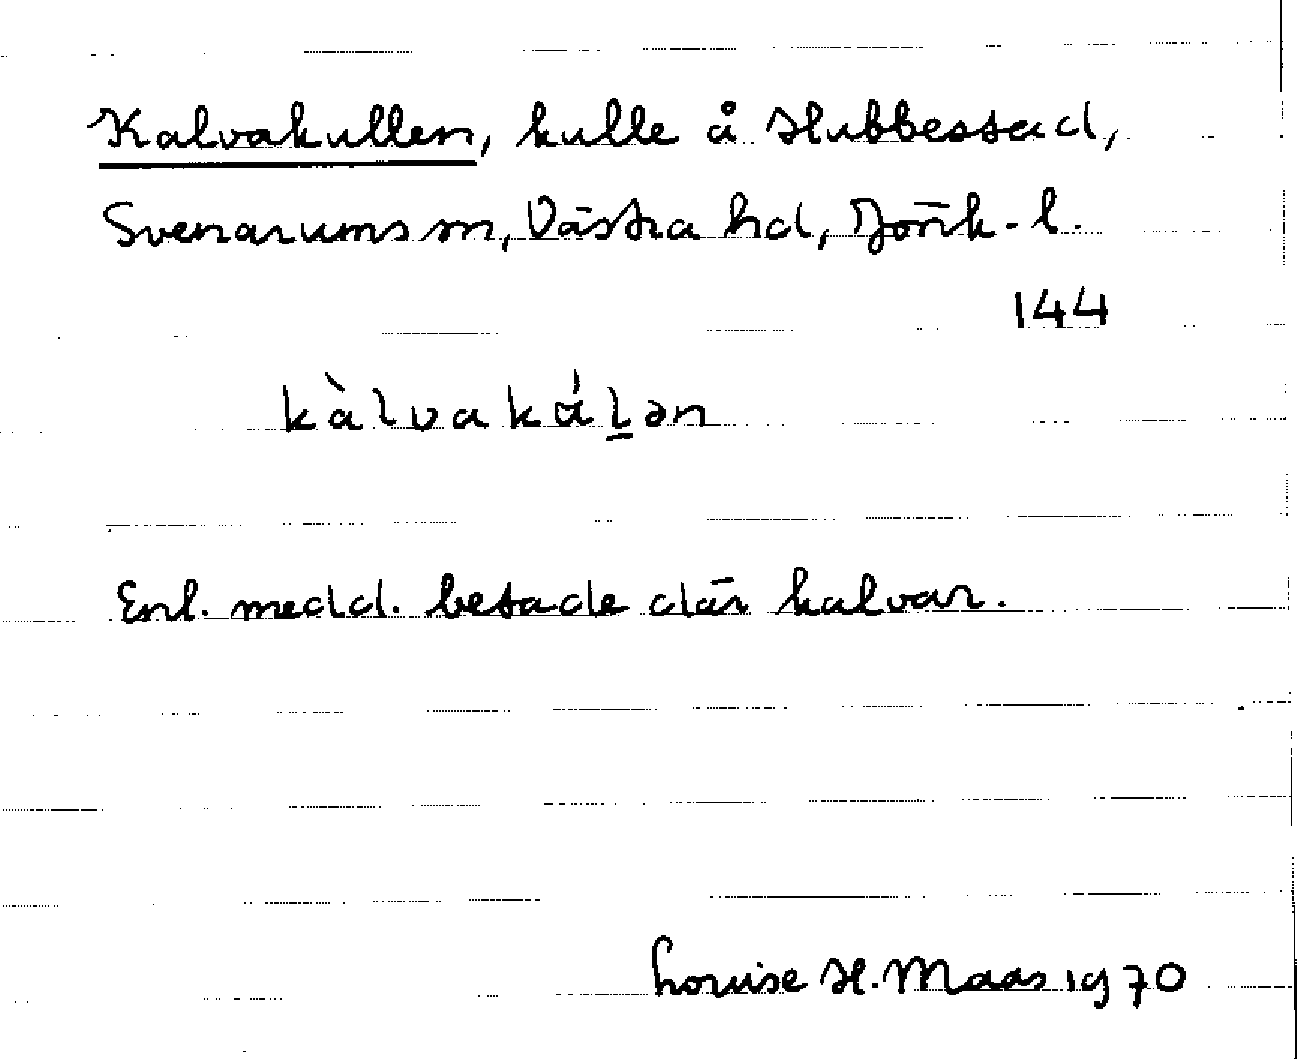 Kalvakullen, kulle å Hubbestad,
Svenarums sn, Västra hd, Jönk-l.
144
kàlvakálən
Enl. medd. betade där kalvar.
Louise H. Maas 1970